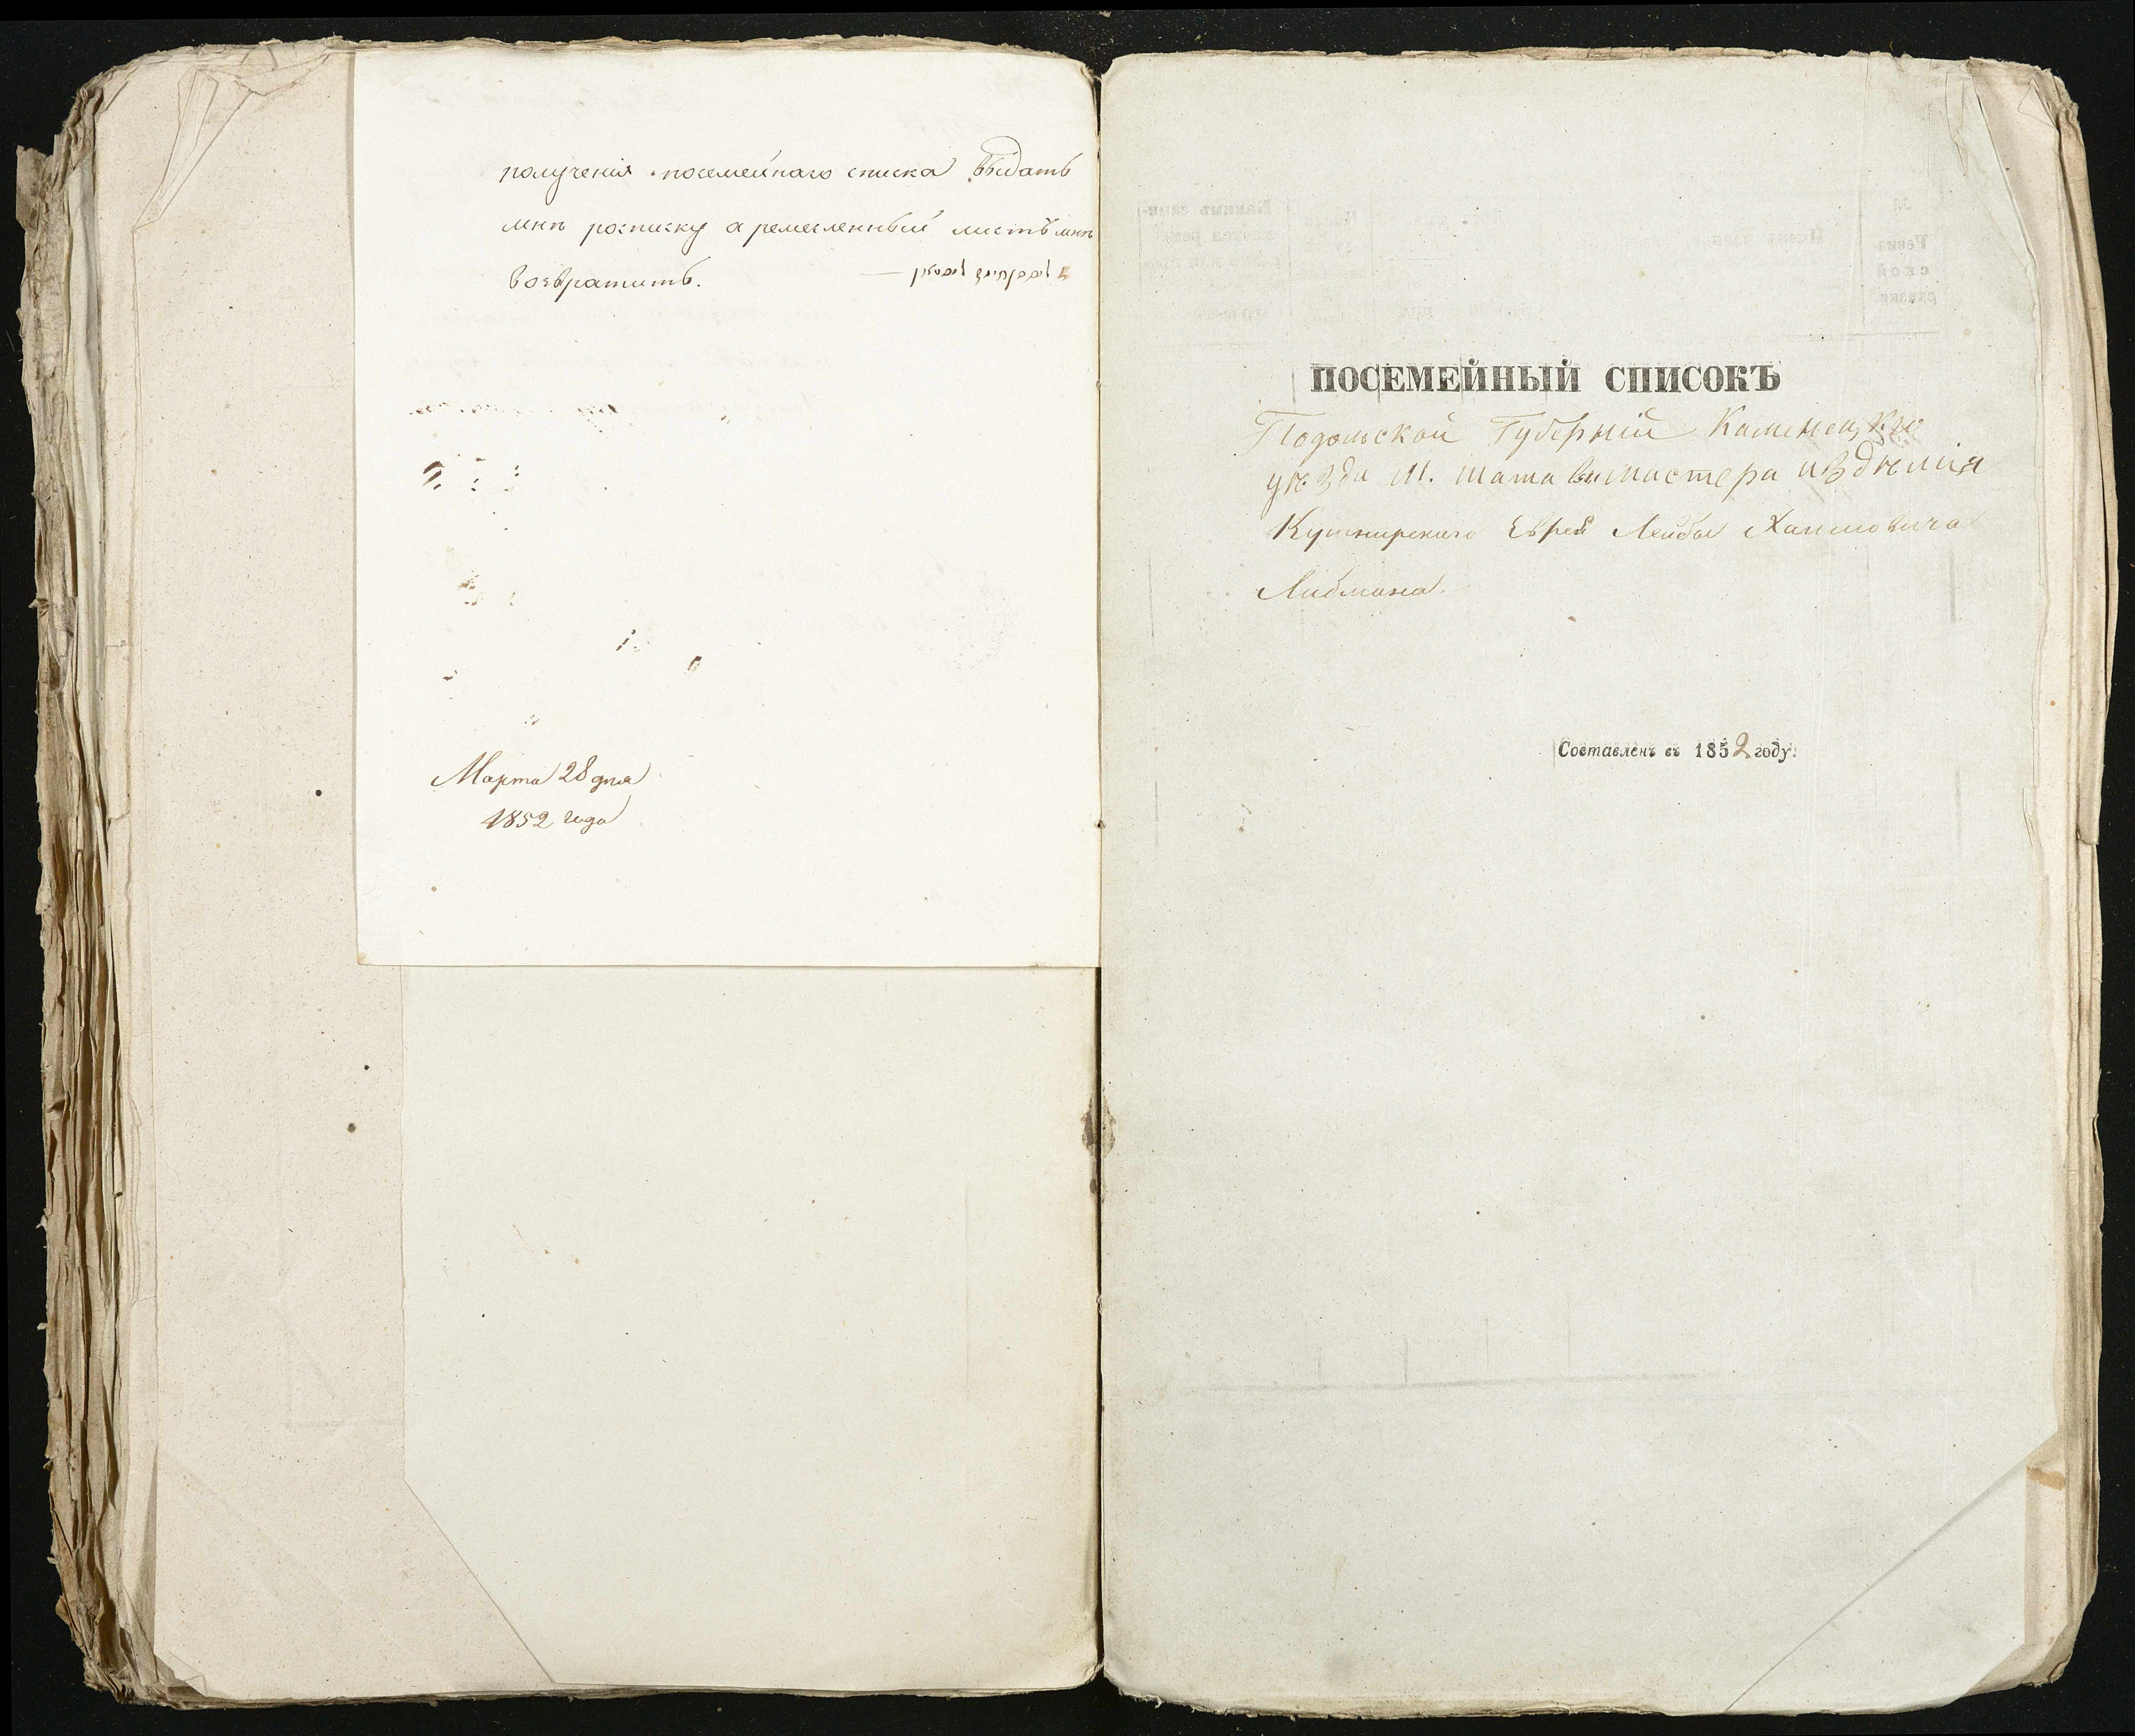 полученія посемейнаго списка выдать
мнѣ росписку а ремесленный листъ мнѣ
возвратить.
Марта 28 дня
1852 года
ПОСЕМЕЙНЫЙ СПИСОКЪ
Подольской Губерніи Каменецкго
уѣзда м. Шатавы мастера издѣлія
Кушнирскаго Еврея Лейбы Хаимовича
Либмана.
Составленъ въ 1852 году.